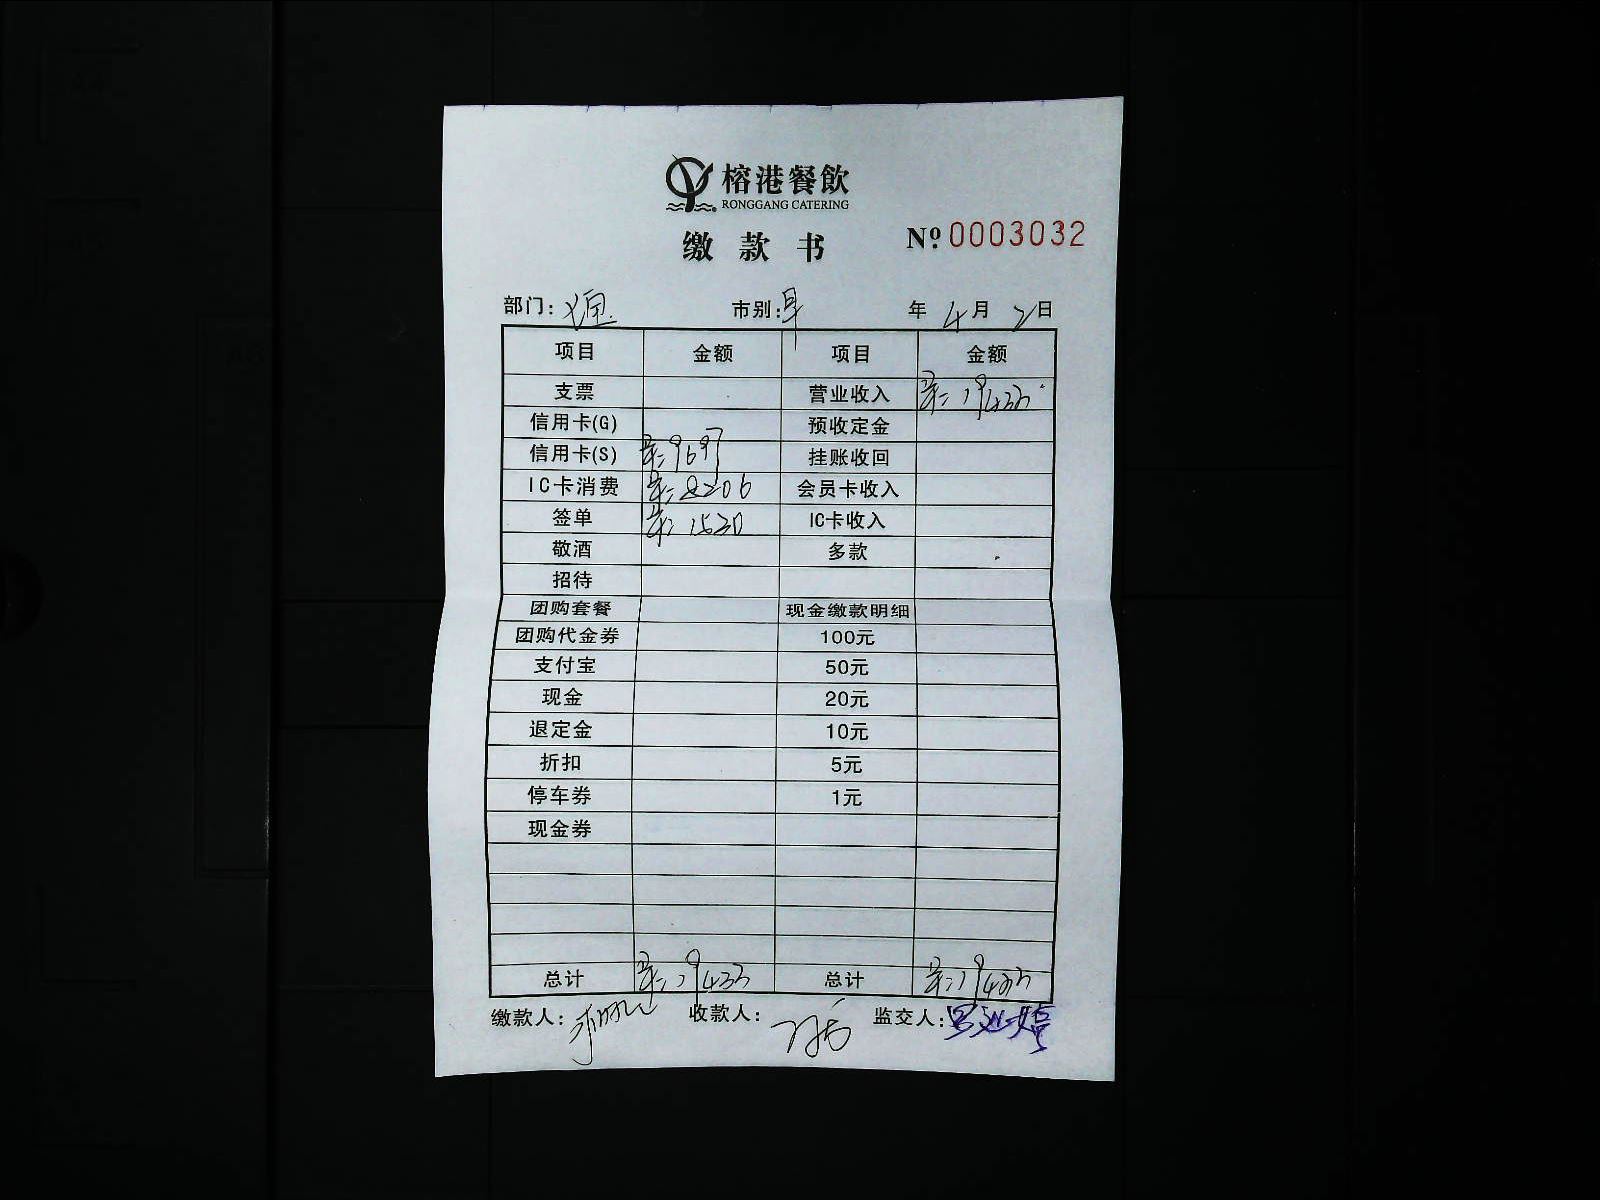 榕港餐飲
RONGGANG CATERING
缴款书 № 0003032
部门: 市别:早 年 4月 2日
项目 金额 项目 金额
支票 营业收入 19433
信用卡(G) 预收定金
信用卡(S) 9697 挂账收回
IC卡消费 8206 会员卡收入
签单 1530 IC卡收入
敬酒 多款
招待
团购套餐 现金缴款明细
团购代金券 100元
支付宝 50元
现金 20元
退定金 10元
折扣 5元
停车券 1元
现金券
总计 19433 总计 19433
缴款人: 收款人: 监交人: